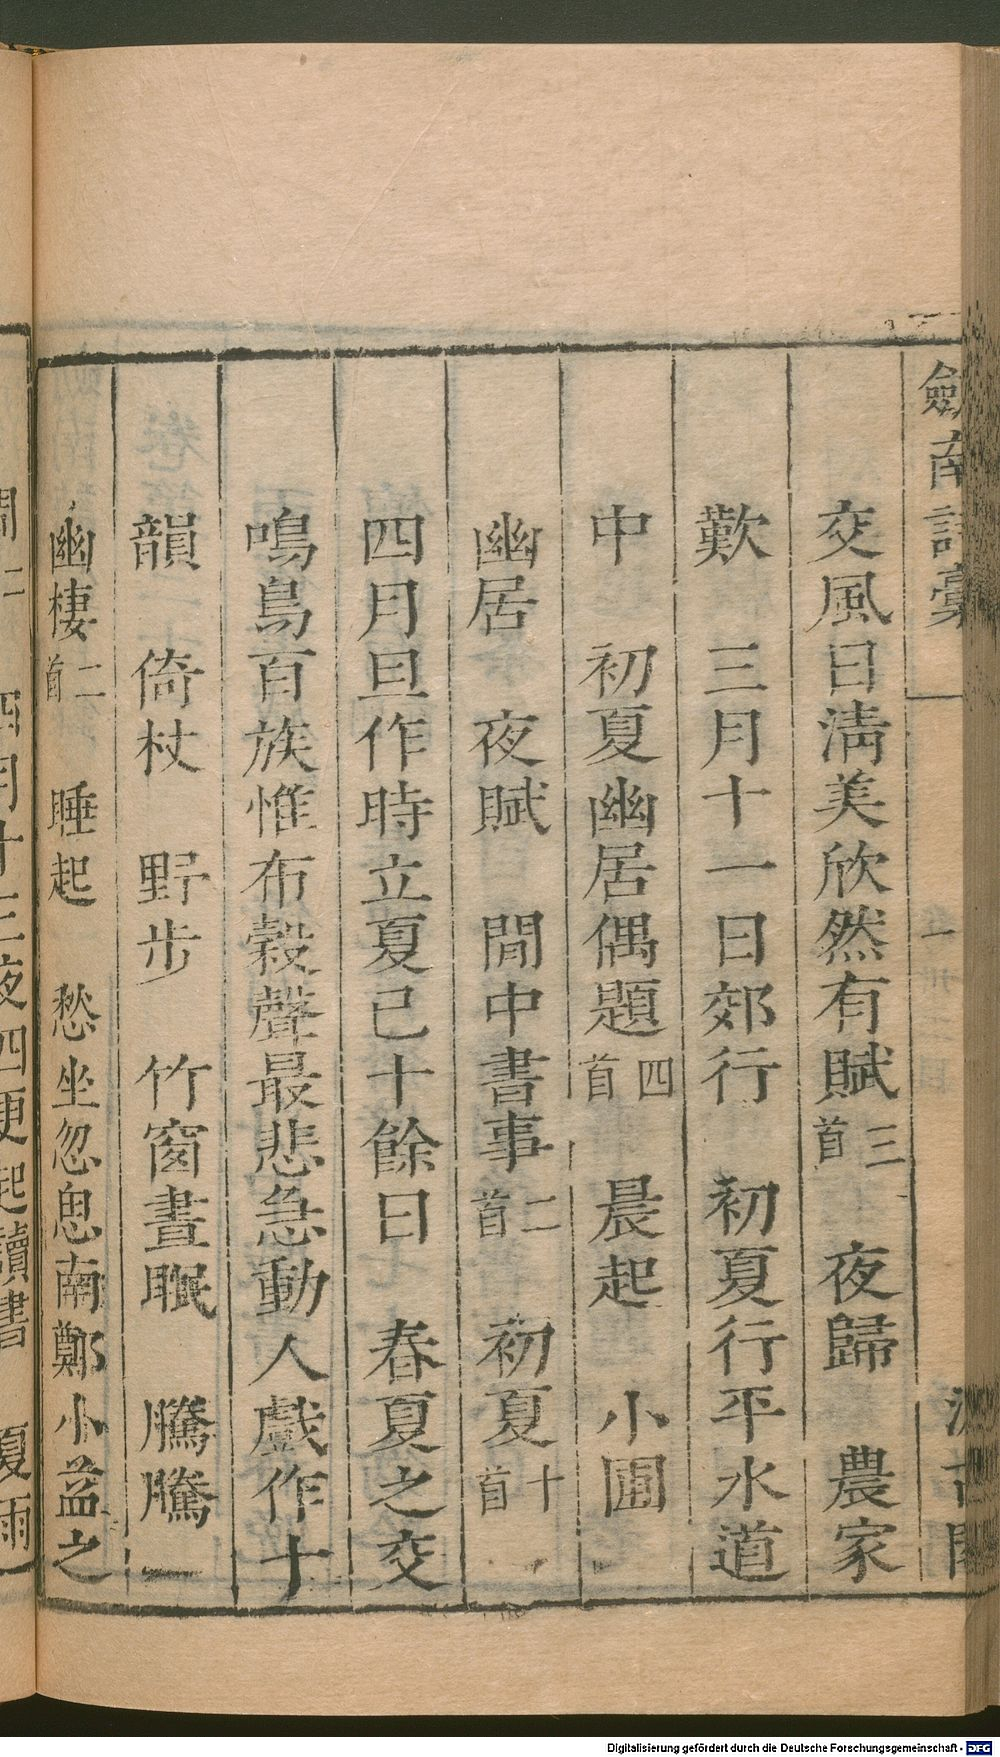 劒南詩藁
交風日淸美欣然有賦三首　夜歸　農家
歎　三月十一日郊行　初夏行平水道
中　初夏幽居偶題四首　晨起　小圃
幽居　夜賦　閒中書事二首　初夏十首
四月旦作時立夏已十餘日　春夏之交
鳴鳥百族惟布穀聲最悲急動人戲作十
韻　倚杖　野步　竹窗晝眠　騰騰　一
幽棲二首　睡起　愁坐忽思南鄭小益之
四月十三夜四更起讀書　夏雨
Digitalisierung gefördert durch die Deutsche Forschungsgemeinschaft - DFG